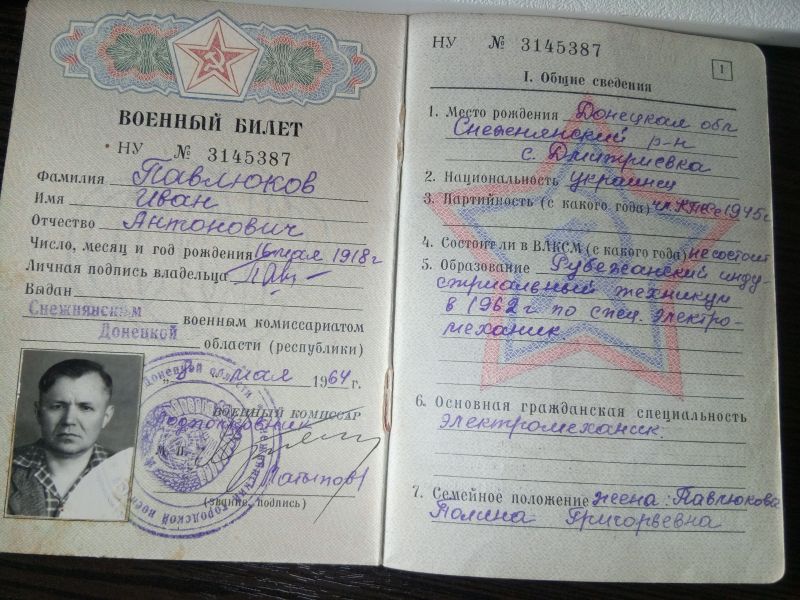 ВОЕННЫЙ БИЛЕТ
НУ № 3145387
Фамилия Павлюков
Имя Иван
Отчество Антонович
Число, месяц и год рождения 16 мая 1918 г
Личная подпись владельца
Выдан
Снежнянским военным комиссариатом
Донецкой области (республики)
мая 1964 г.
ВОЕННЫЙ КОМИССАР
Подполковник
М. П.
Латыпов
(звание, подпись)
НУ № 3145387
1
I. Общие сведения
1. Место рождения Донецкая обл
Снежнянский р-н
с. Дмитриевка
2. Национальность украинец
3. Партийность (с какого года) чл. КПСС с 1945 г
4. Состоял и в ВЛКСМ (с какого года) не состоит
5. Образование Рубежанский инду-
стриальный техникум
в 1962 г по спец. электро-
механик
6. Основная гражданская специальность
электромеханик.
7. Семейное положение жена: Павлюкова
Полина Григорьевна